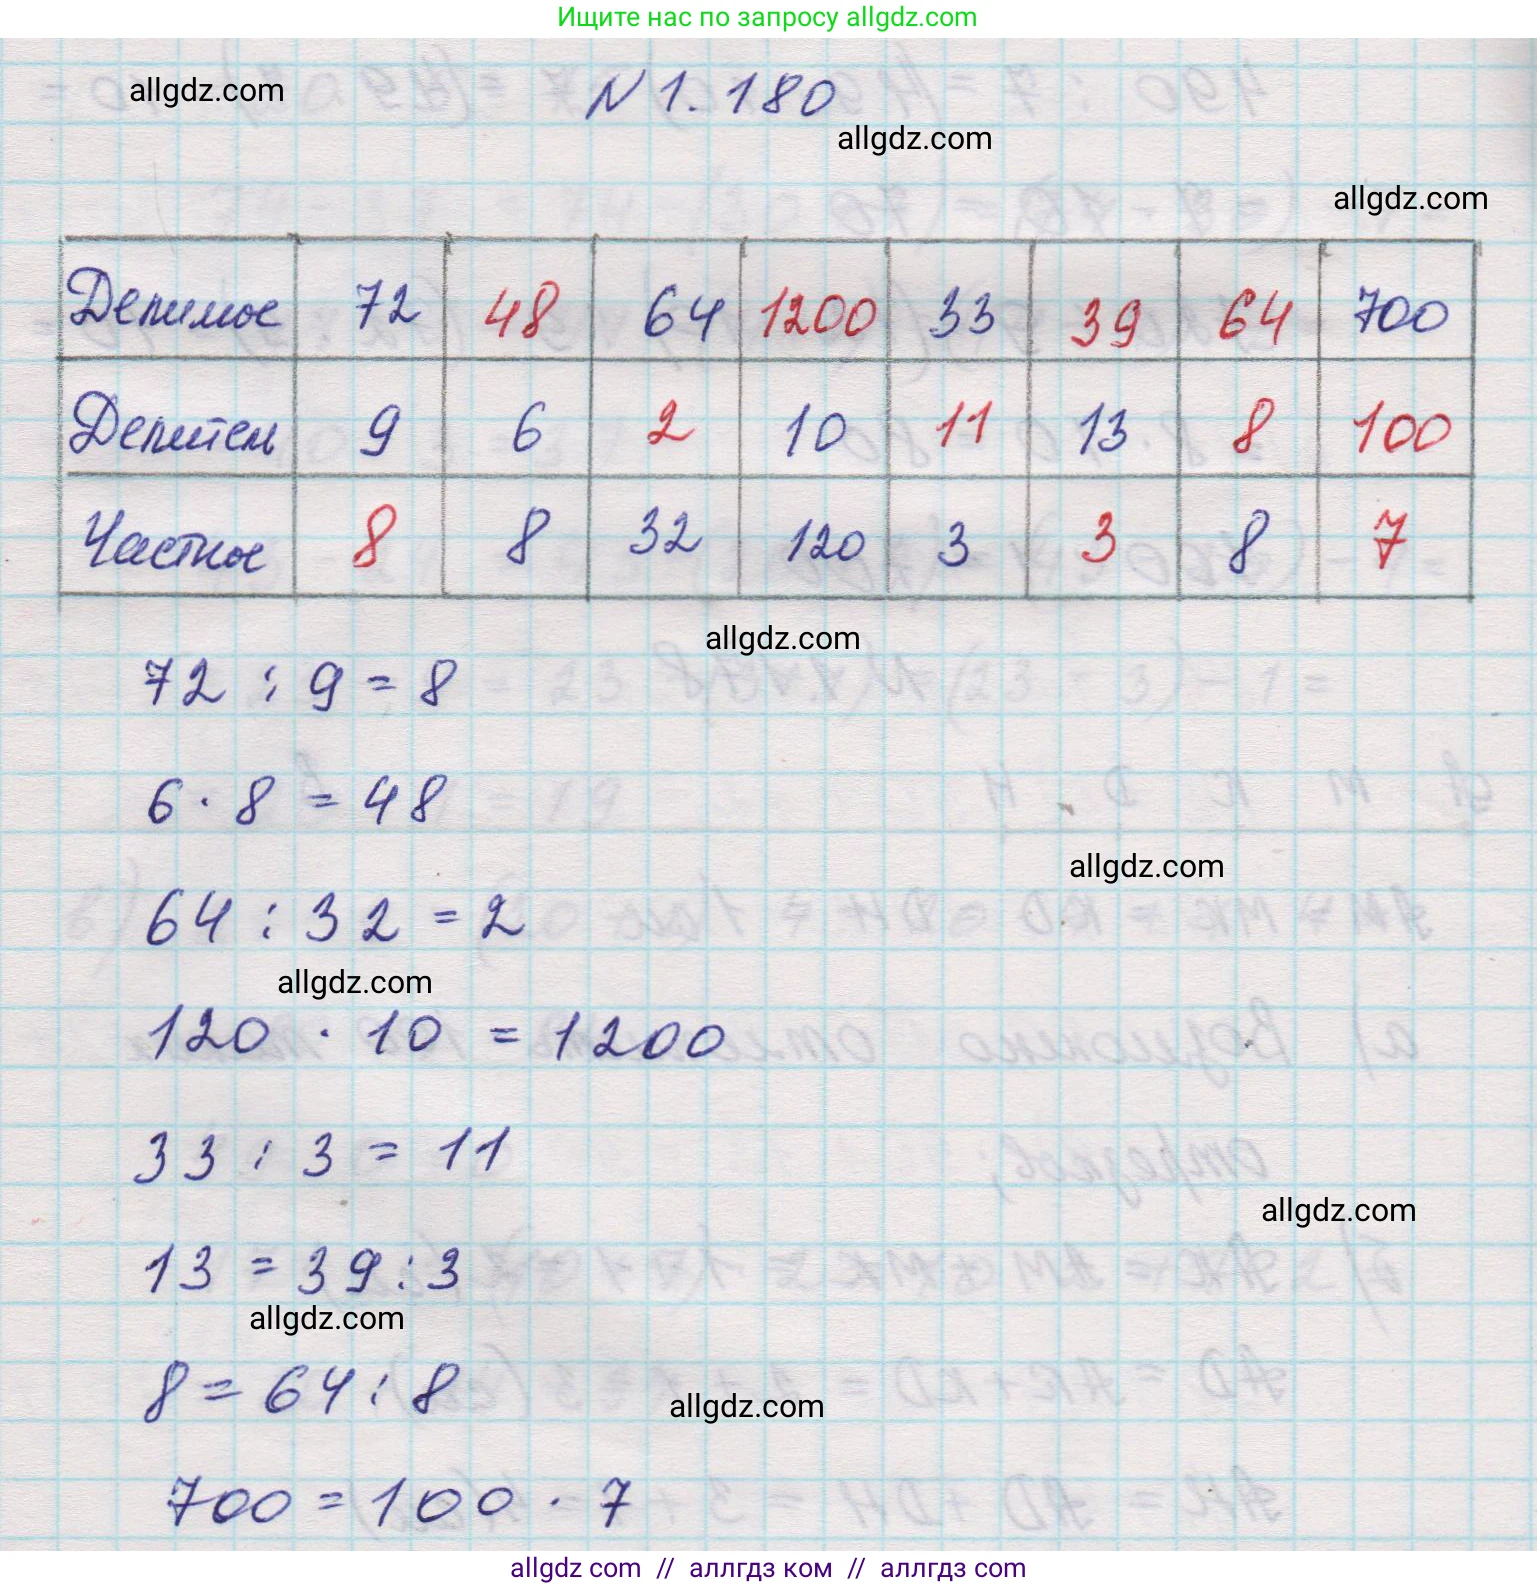 Ищите нас по запросу allgdz.com
allgdz.com
N 1.180
allgdz.com
allgdz.com
Делимое 72 48 64 1200 33 39 64 700
Делители 9 6 2 10 11 13 8 100
Частное 8 8 32 120 3 3 8 7
allgdz.com
72 : 9 = 8
6 · 8 = 48
allgdz.com
64 : 32 = 2
allgdz.com
120 · 10 = 1200
33 : 3 = 11
allgdz.com
13 = 39 : 3
allgdz.com
8 = 64 : 8
allgdz.com
700 = 100 · 7
allgdz.com // аллгдз ком // allgdz.com